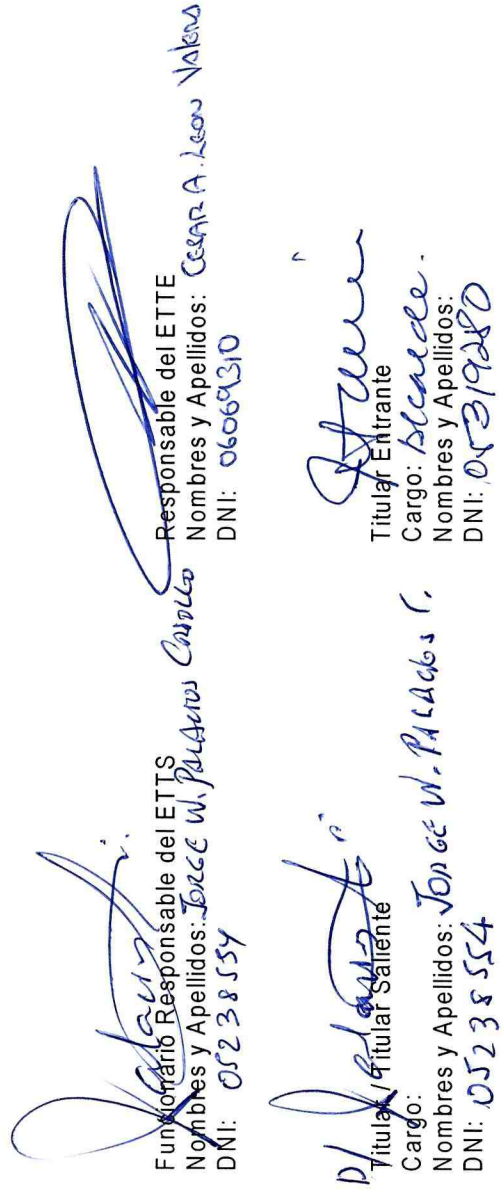 Funcionario Responsable del ETTS
Nombres y Apellidos: JORGE W. PALACIOS
DNI: 05238554
Responsable del ETTE
Nombres y Apellidos: CESAR A. LEON
DNI: 06069310
P/
Titular / Titular Saliente
Cargo:
Nombres y Apellidos: JORGE W. PALACIOS
DNI: 05238554
Titular Entrante
Cargo: Alcalde.
Nombres y Apellidos:
DNI: 05319280